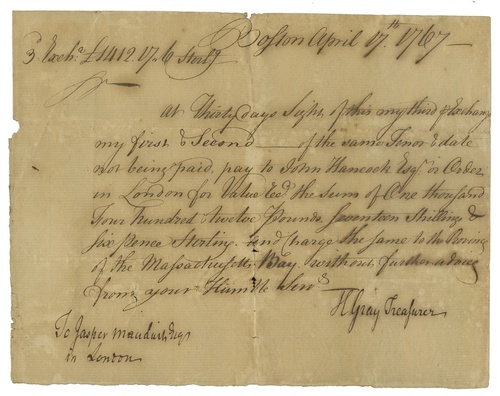 Boston April 17.th 1767
3 Excha £1412.17.6 Sterlg
At Thirty days Sight of this my third of Exchang
my first & Second of the same Tenor & date
not being paid, pay to John Hancock Esqr or Order
in London for Value Recd the Sum of One thousand
Four hundred twelve Pounds Seventeen Shillings &
six pence Sterling and Charge the same to the Provinc
of the Massachusetts Bay without further advice
from your Humble Servt
H Gray Treasurer
To Jasper Mauduit Esqr
in London